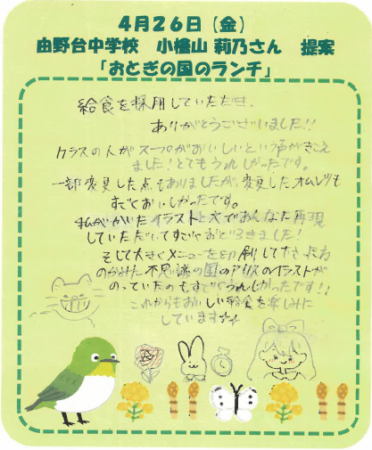 4月26日(金)
由野台中学校 小檜山 莉乃さん 提案
「おとぎの国のランチ」
給食を採用していただき、
ありがとうございました!!
クラスの人がスープがおいしいという声がきこえ
ました!とてもうれしかったです。
一部変更した点もありましたが、変更したオムレツも
すごくおいしかったです。
私がかいたイラスト
していただいてすごくおどろきました!
そして大きくメニューを印刷して
のがみた不思議の国のアリスのイラストが
のっていたのもすごくうれしかったです!!
これからもおいしい給食を楽しみに
しています